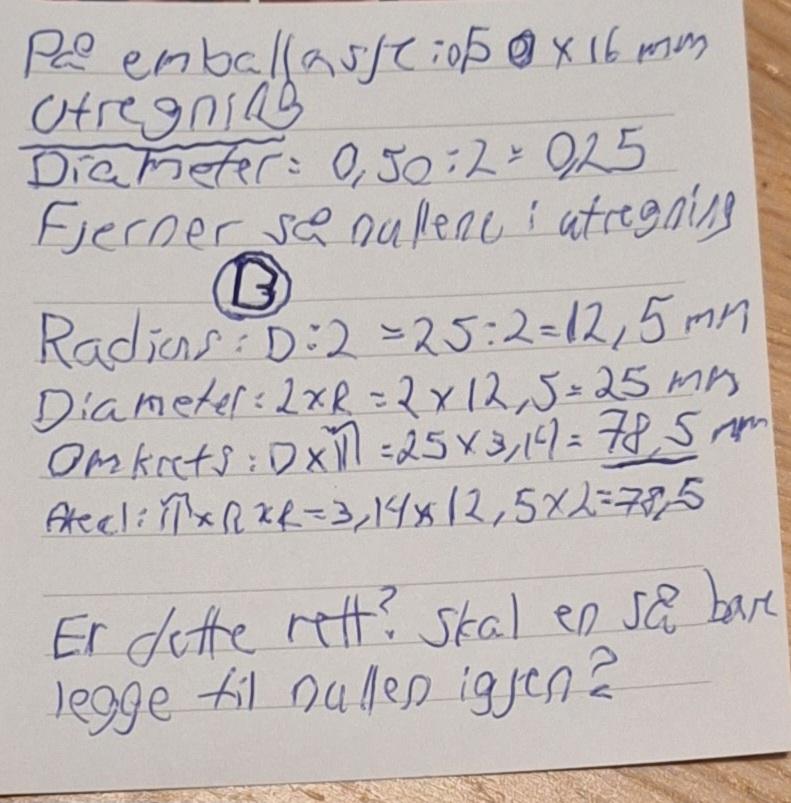 På emballasje: 0,50 x 16 mm
Utregning
Diameter: 0,50:2= 0,25
Fjerner så nullene i utregning
B
Radius: D:2 = 25:2=12,5 mm
Diameter: 2xR = 2x12,5= 25 mm
Omkrets: Dxπ =25x3,14= 78,5 mm
Areal: πxRxR=3,14x12,5x2=78,5
Er dette rett? Skal en så bare
legge til nullen igjen?